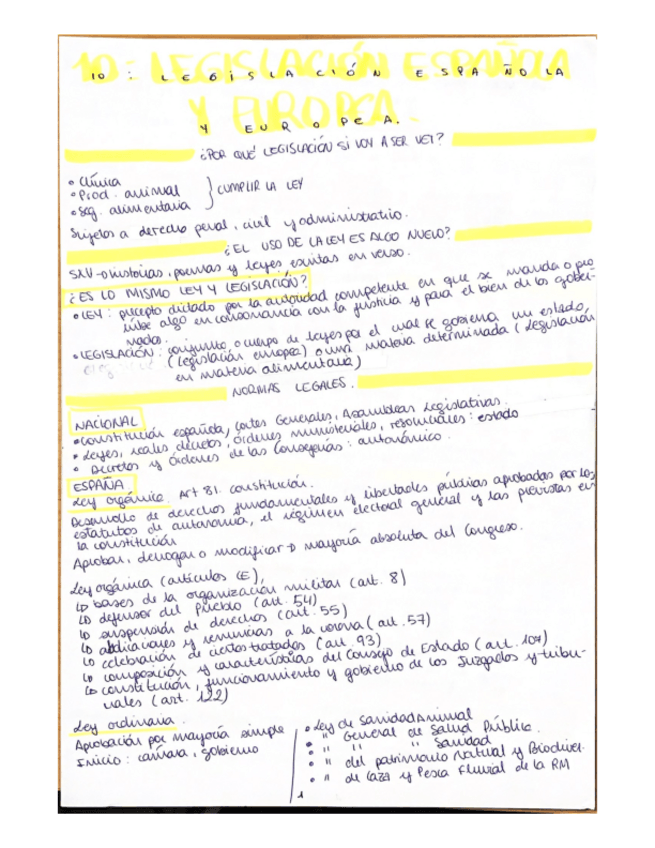 10: LEGISLACIÓN ESPAÑOLA
Y EUROPEA.
¿POR QUÉ LEGISLACIÓN SI VOY A SER VET?
• Clínica
• Prod. animal
• Seg. alimentaria
} CUMPLIR LA LEY
Sujetos a derecho penal, civil y administrativo.
¿EL USO DE LA LEY ES ALGO NUEVO?
historias, poemas y leyes escritas en verso.
¿ES LO MISMO LEY Y LEGISLACIÓN?
• LEY: precepto dictado por la autoridad competente en que se manda o pro
híbe algo en consonancia con la justicia y para el bien de los gober-
nados.
• LEGISLACIÓN: conjunto o cuerpo de leyes por el cual se gobierna un estado,
(legislación europea) o una materia determinada (legislación
en materia alimentaria)
NORMAS LEGALES.
NACIONAL
• Constitución española, Cortes Generales, Asambleas Legislativas.
• Leyes, reales decretos, órdenes ministeriales, resoluciones: estado
• Decretos y Órdenes de las Consejerías: autonómico.
ESPAÑA
Ley orgánica. Art 81. constitución.
Desarrollo de derechos fundamentales y libertades públicas aprobadas por los
estatutos de autonomía, el régimen electoral general y las previstas en
la constitución
Aprobar, derogar o modificar → mayoría absoluta del Congreso.
Ley orgánica (artículos CE),
↳ bases de la organización militar (art. 8)
↳ defensor del Pueblo (art. 54)
↳ suspensión de derechos (art. 55)
↳ abdicaciones y renuncias a la corona (art. 57)
↳ celebración de ciertos tratados (art. 93)
↳ composición y características del Consejo de Estado (art. 107)
↳ constitución, funcionamiento y gobierno de los Juzgados y tribu-
nales (art. 122)
Ley ordinaria.
Aprobación por mayoría simple
Inicio: cámara, gobierno
• Ley de Sanidad Animal
• " General de Salud Pública
• " " " Sanidad
• " del patrimonio Natural y Biodiver.
• " de Caza y Pesca Fluvial de la RM
1